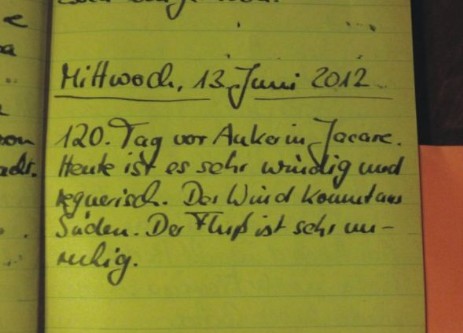 Mittwoch, 13. Juni 2012
120. Tag vor Anker in Jacare.
Heute ist es sehr windig und
regnerisch. Der Wind kommt aus
Süden. Der Fluß ist sehr un-
ruhig.